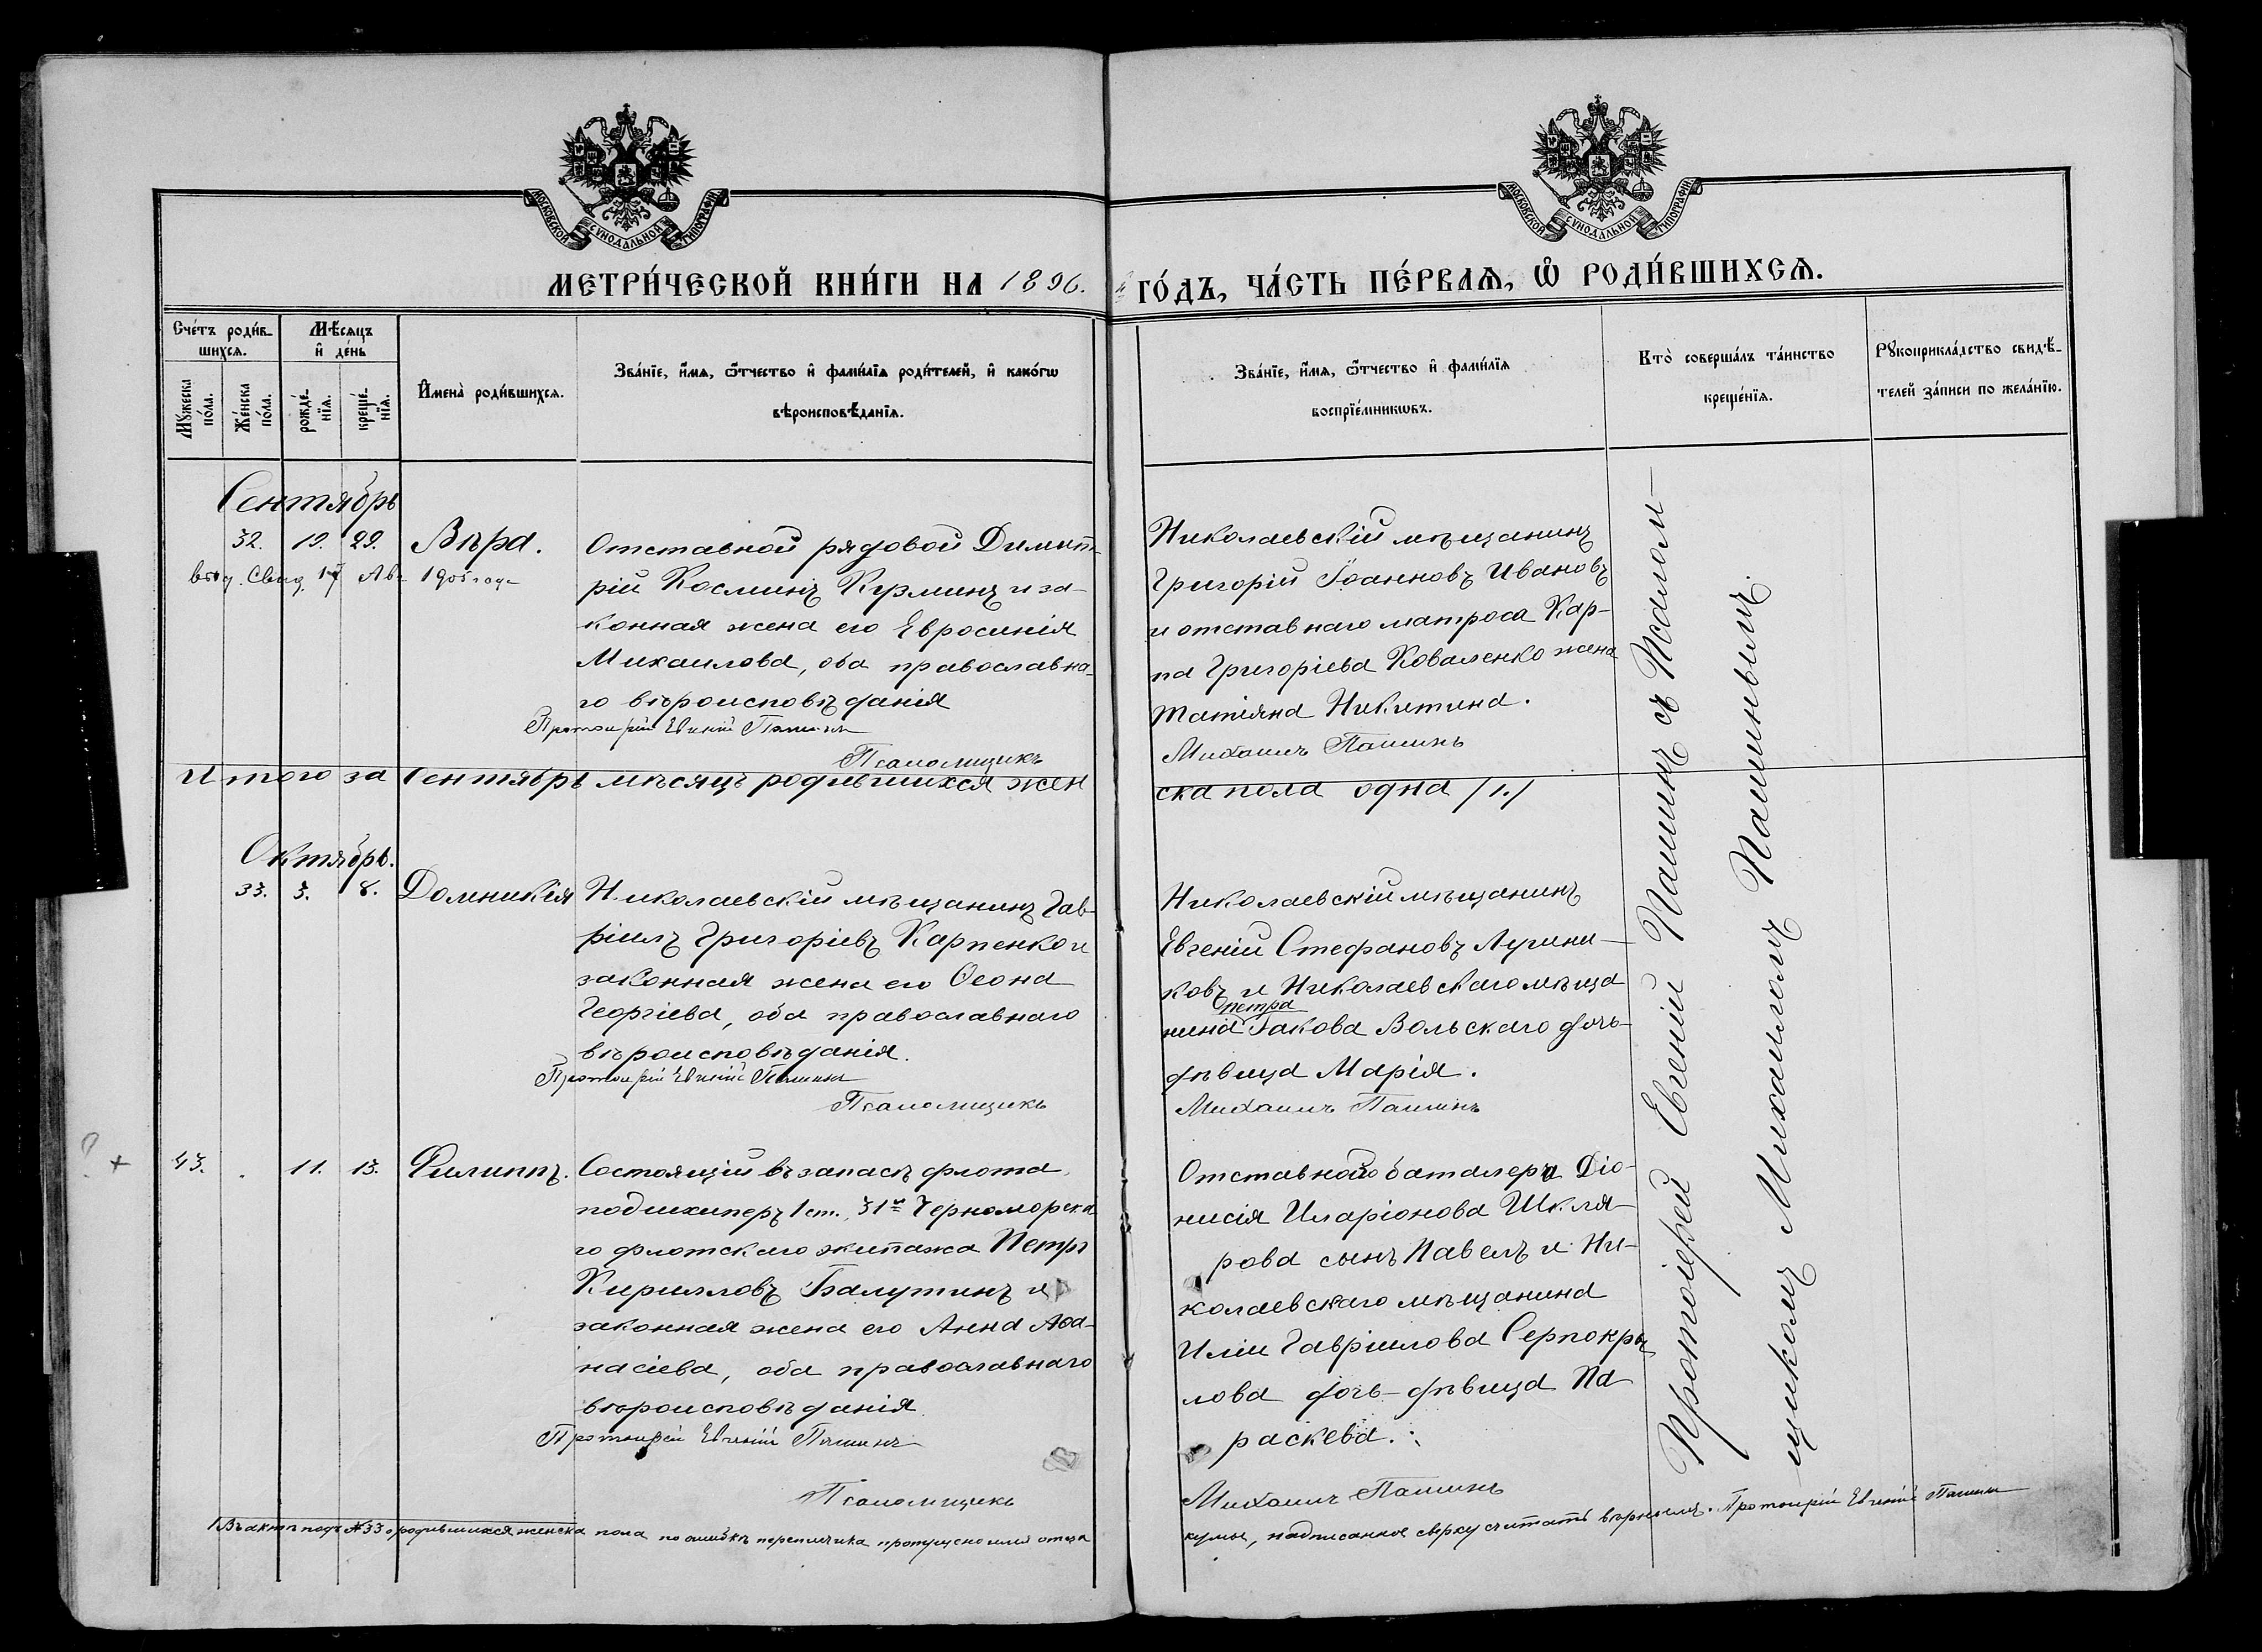 МОСКОВСКОЙ СѴНОДАЛЬНОЙ ТИПОГРАФІИ
МОСКОВСКОЙ СѴНОДАЛЬНОЙ ТИПОГРАФІИ
МЕТРИ́ЧЕСКОЙ КНИ́ГИ НА 1896.
ГО́ДЪ, ЧА́СТЬ ПЕ́РВАѦ, Ѽ РОДИ́ВШИХСѦ.
Сче́тъ роди́в-
шихсѧ.
Мѣ́сяцъ
и҆ де́нь
Мꙋжеска
по́ла.
Же́нска
по́ла.
рожде́-
нїѧ.
креще́-
нїѧ.
И҆мена̀ роди́вшихсѧ.
Зва́нїе, и҆́мѧ, ѻ҆́тчество и҆ фами́лїѧ роди́телей, и҆ како́гѡ
вѣроисповѣ́данїѧ.
Зва́нїе, и҆́мѧ, ѻ҆́тчество и҆ фами́лїѧ
воспрїе́мникѡвъ.
Кто̀ соверша́лъ та́инство
креще́нїѧ.
Рꙋкоприкла́дство свидѣ́-
телей за́писи по жела́нїю.
Сентябрь
32. 19. 29. Вѣра.
выд. Свид. 17 Авг 1905 года
Отставной рядовой Димит-
рій Косминъ Кузминъ и за-
конная жена его Евросинія
Михаилова, оба православна-
го вѣроисповѣданія
Протоіерей Евгеній Пашинъ
Псаломщикъ
Николаевскій мѣщанинъ
Григорій Іоанновъ Ивановъ
и отставнаго матроса Кар-
па Григоріева Коваленко жена
Татіяна Никитина.
Михаилъ Пашинъ
Итого за Сентябрь мѣсяцъ родившихся жен
ска пола одна /1./
Октябрь.
33. 3. 8. Домникія
Николаевскій мѣщанинъ Гав-
ріилъ Григоріевъ Карпенко и
законная жена его Ѳеона
Георгіева, оба православнаго
вѣроисповѣданія.
Протоіерей Евгеній Пашинъ
Псаломщикъ
Николаевскій мѣщанинъ
Евгеній Стефановъ Лучни-
ковъ и Николаевскаго мѣща
Петра
нина Іакова Вольскаго дочь-
дѣвица Марія.
Михаилъ Пашинъ
43. 11. 13. Филиппъ.
Состоящій въ запасѣ флота
подшкиперъ 1 ст., 31го Черноморска
го флотскаго экипажа Петръ
Кирилловъ Балутинъ и
законная жена его Анна Аѳа-
насіева, оба православнаго
вѣроисповѣданія
Протоіерей Евгеній Пашинъ
Псаломщикъ
Отставного баталера Діо-
нисія Иларіонова Шкля-
рова сынъ Павелъ и Ни-
колаевскаго мѣщанина
Иліи Гавріилова Серпокры
лова дочь-дѣвица Па
раскева.
Михаилъ Пашинъ
Протоіерей Евгеній Пашинъ съ Псалом-
щикомъ Михаиломъ Пашинымъ.
Въ актѣ подъ №33 о родившихся женска пола по ошибкѣ переписчика пропущено имя отца
кумы, надписанное сверху считать вѣрнымъ. Протоіерей Евгеній Пашинъ